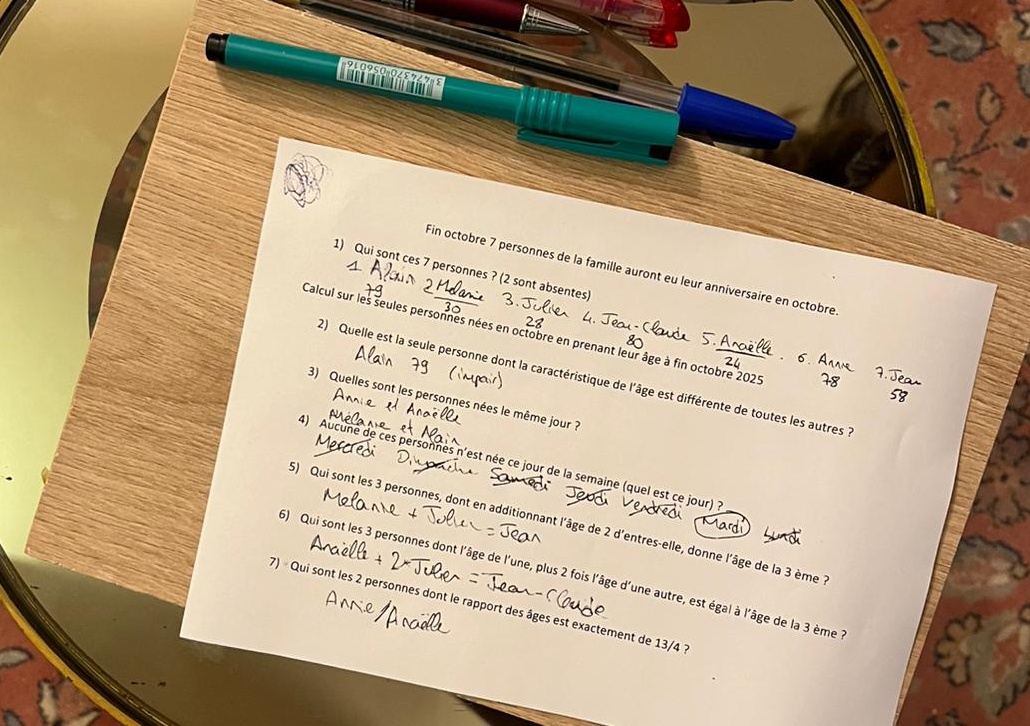 3 474370 056016
Fin octobre 7 personnes de la famille auront eu leur anniversaire en octobre.
1) Qui sont ces 7 personnes ? (2 sont absentes)
1 Alain 2 Melanie 3. Julien 4. Jean-Claude 5. Anaëlle. 6. Annie 7. Jean
79 30 28 80 24 78 58
Calcul sur les seules personnes nées en octobre en prenant leur âge à fin octobre 2025
2) Quelle est la seule personne dont la caractéristique de l'âge est différente de toutes les autres ?
Alain 79 (impair)
3) Quelles sont les personnes nées le même jour ?
Annie et Anaëlle
Mélanie et Alain
4) Aucune de ces personnes n'est née ce jour de la semaine (quel est ce jour) ?
Mercredi Dimanche Samedi Jeudi Vendredi Mardi Lundi
5) Qui sont les 3 personnes, dont en additionnant l'âge de 2 d'entres-elle, donne l'âge de la 3 ème ?
Melanie + Julien = Jean
6) Qui sont les 3 personnes dont l'âge de l'une, plus 2 fois l'âge d'une autre, est égal à l'âge de la 3 ème ?
Anaëlle + 2*Julien = Jean-Claude
7) Qui sont les 2 personnes dont le rapport des âges est exactement de 13/4 ?
Annie/Anaëlle